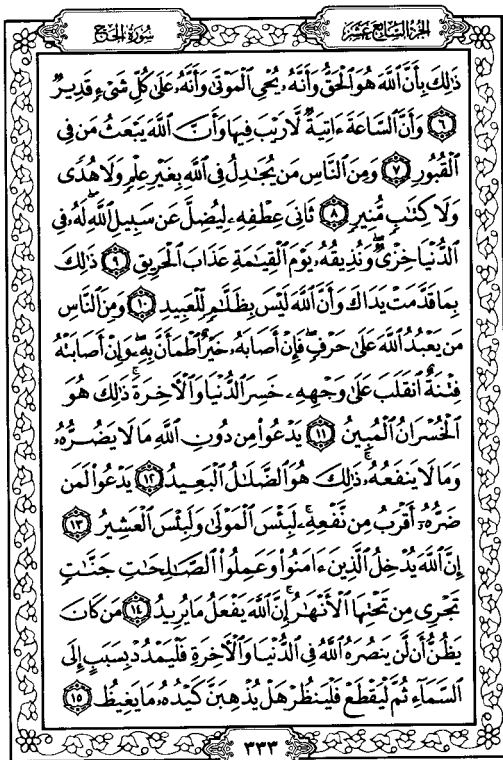 الجزء السابع عشر
سورة الحج
ذَٰلِكَ بِأَنَّ ٱللَّهَ هُوَ ٱلْحَقُّ وَأَنَّهُۥ يُحْىِ ٱلْمَوْتَىٰ وَأَنَّهُۥ عَلَىٰ كُلِّ شَىْءٍ قَدِيرٌ
٦ وَأَنَّ ٱلسَّاعَةَ ءَاتِيَةٌ لَّا رَيْبَ فِيهَا وَأَنَّ ٱللَّهَ يَبْعَثُ مَن فِى
ٱلْقُبُورِ ٧ وَمِنَ ٱلنَّاسِ مَن يُجَٰدِلُ فِى ٱللَّهِ بِغَيْرِ عِلْمٍ وَلَا هُدًى
وَلَا كِتَٰبٍ مُّنِيرٍ ٨ ثَانِىَ عِطْفِهِۦ لِيُضِلَّ عَن سَبِيلِ ٱللَّهِ لَهُۥ فِى
ٱلدُّنْيَا خِزْىٌ وَنُذِيقُهُۥ يَوْمَ ٱلْقِيَٰمَةِ عَذَابَ ٱلْحَرِيقِ ٩ ذَٰلِكَ
بِمَا قَدَّمَتْ يَدَاكَ وَأَنَّ ٱللَّهَ لَيْسَ بِظَلَّٰمٍ لِّلْعَبِيدِ ١٠ وَمِنَ ٱلنَّاسِ
مَن يَعْبُدُ ٱللَّهَ عَلَىٰ حَرْفٍ فَإِنْ أَصَابَهُۥ خَيْرٌ ٱطْمَأَنَّ بِهِۦ وَإِنْ أَصَابَتْهُ
فِتْنَةٌ ٱنقَلَبَ عَلَىٰ وَجْهِهِۦ خَسِرَ ٱلدُّنْيَا وَٱلْأَخِرَةَ ذَٰلِكَ هُوَ
ٱلْخُسْرَانُ ٱلْمُبِينُ ١١ يَدْعُوا۟ مِن دُونِ ٱللَّهِ مَا لَا يَضُرُّهُۥ
وَمَا لَا يَنفَعُهُۥ ذَٰلِكَ هُوَ ٱلضَّلَٰلُ ٱلْبَعِيدُ ١٢ يَدْعُوا۟ لَمَن
ضَرُّهُۥٓ أَقْرَبُ مِن نَّفْعِهِۦ لَبِئْسَ ٱلْمَوْلَىٰ وَلَبِئْسَ ٱلْعَشِيرُ ١٣
إِنَّ ٱللَّهَ يُدْخِلُ ٱلَّذِينَ ءَامَنُوا۟ وَعَمِلُوا۟ ٱلصَّٰلِحَٰتِ جَنَّٰتٍ
تَجْرِى مِن تَحْتِهَا ٱلْأَنْهَٰرُ إِنَّ ٱللَّهَ يَفْعَلُ مَا يُرِيدُ ١٤ مَن كَانَ
يَظُنُّ أَن لَّن يَنصُرَهُ ٱللَّهُ فِى ٱلدُّنْيَا وَٱلْأَخِرَةِ فَلْيَمْدُدْ بِسَبَبٍ إِلَى
ٱلسَّمَآءِ ثُمَّ لْيَقْطَعْ فَلْيَنظُرْ هَلْ يُذْهِبَنَّ كَيْدُهُۥ مَا يَغِيظُ ١٥
٣٣٣